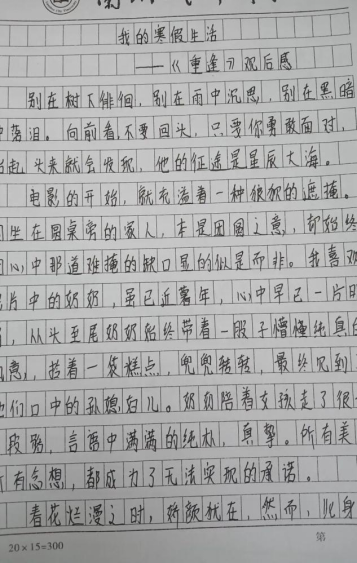 我的寒假生活
——《重逢》观后感
别在树下徘徊,别在雨中沉思,别在黑暗
中落泪。向前看,不要回头,只要你勇敢面对,
抬起头来就会发现,他的征途是星辰大海。
电影的开始,就充溢着一种狠狠的遮掩。
坐在圆桌旁的家人,本是团圆之意,却始终
心中那道难掩的缺口显的似是而非。我喜欢
片中的奶奶,虽已近暮年,心中早已一片
,从头至尾奶奶始终带着一股子懵懂纯真的
意,拮着一袋糕点,兜兜转转,最终见到
他们口中的孙媳妇儿。奶奶陪着女孩走了很
段路,言语中满满的纯朴,真挚。所有美
所有念想,都成为了无法实现的承诺。
春花烂漫之时,娇颜犹在,然而,此身
20×15=300
第